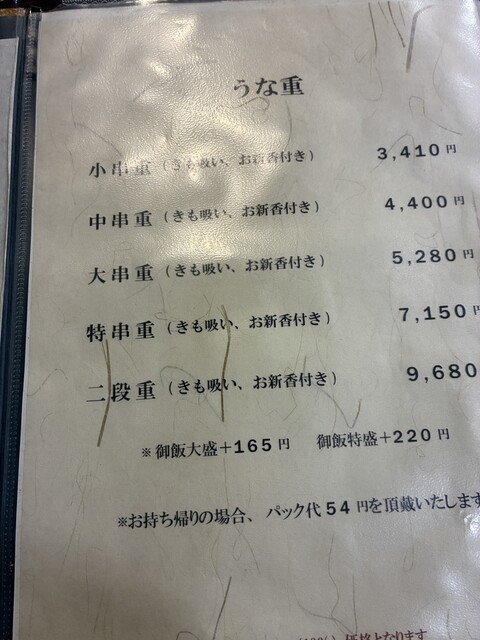 うな重
小串重 (きも吸い、お新香付き) 3,410円
中串重 (きも吸い、お新香付き) 4,400円
大串重 (きも吸い、お新香付き) 5,280円
特串重 (きも吸い、お新香付き) 7,150円
二段重 (きも吸い、お新香付き) 9,680
※御飯大盛+165円 御飯特盛+220円
※お持ち帰りの場合、パック代54円を頂戴いたします
価格となります